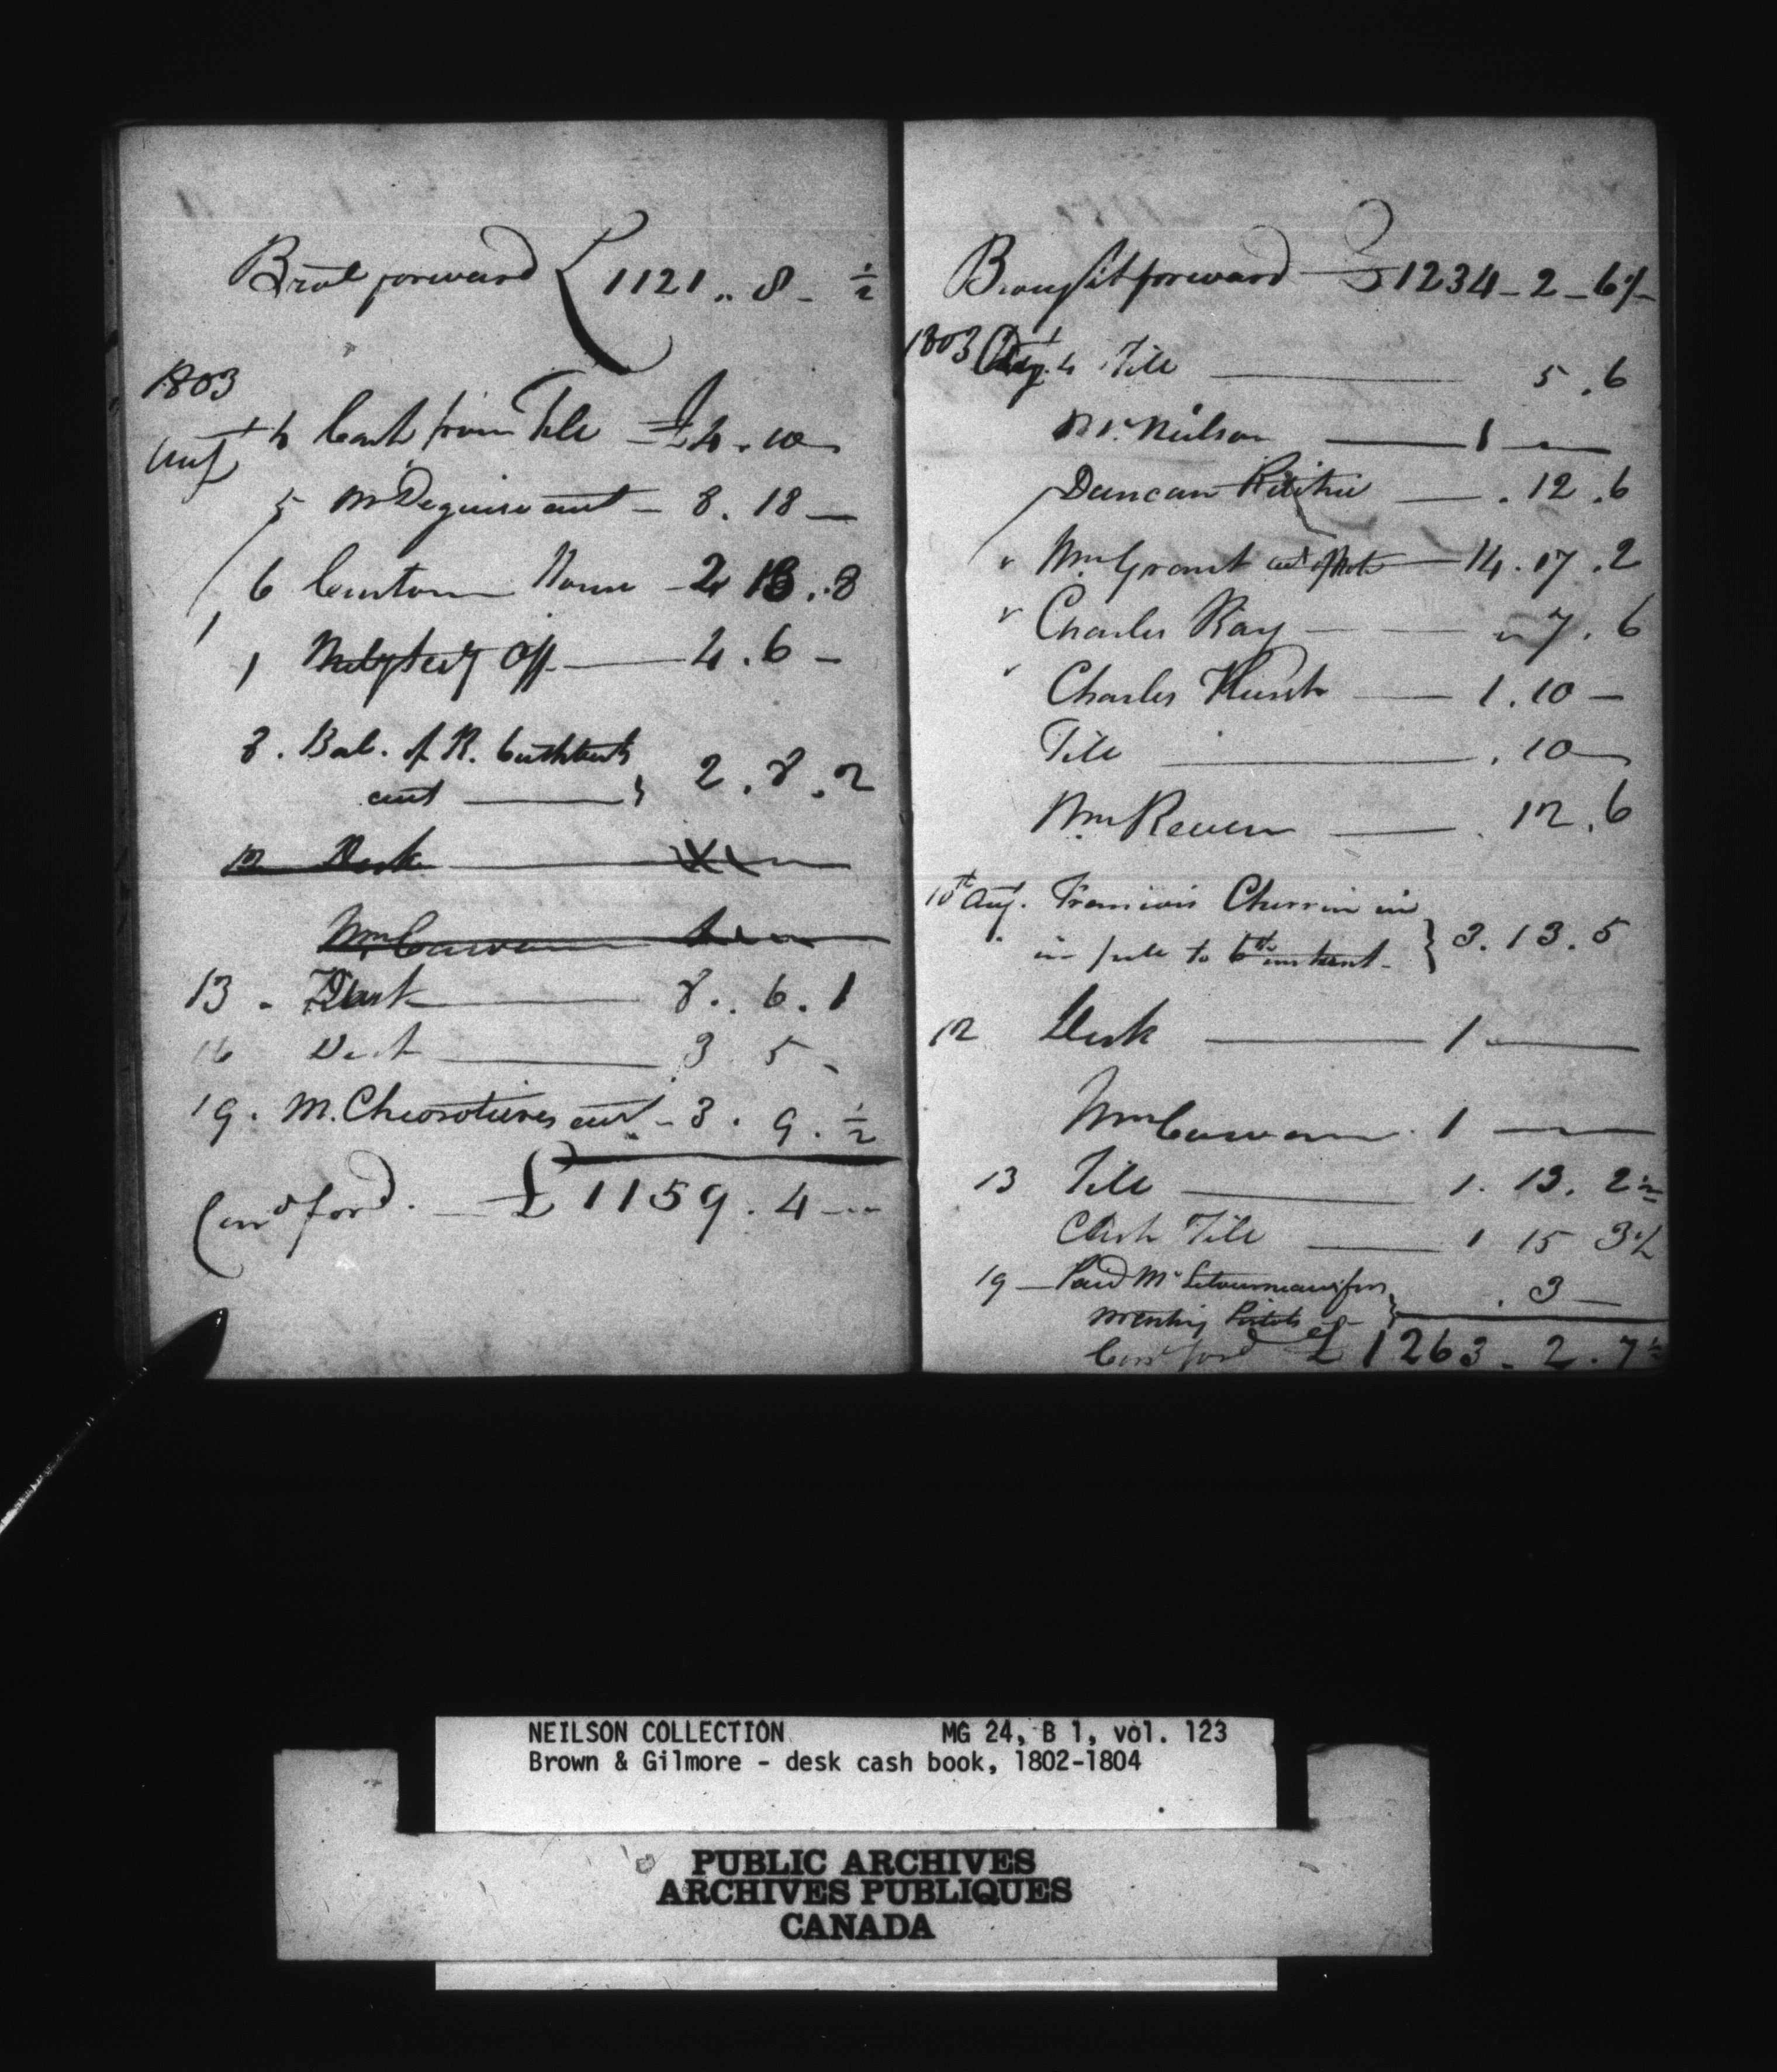 Brot forward £ 1121 .. 8 - ½
1803
Augt 4 Cash from Till £4 . 10
5 Mr Deguise acct - 8 . 18 —
6 Custom House - 2 13 . 8
Off — 4 . 6 -
8 . Bal. of R. Cuthberts
acct — } 2 . 8 . 2
12 Desk
Wm Cowan
13 - Desk — 8 . 6 . 1
16 Desk — 3 5 -
19 . M. acct - 3 . 9 . ½
Card ford . — £ 1159 . 4 —
Brought forward — £ 1234 - 2 - 6½
1803 Augt 4 Till — 5 . 6
Mr Neilson — 1 —
Duncan Ritchie — . 12 . 6
" Wm Grant — 14 . 17 . 2
" Charles Ray — — " 7 . 6
" Charles Hunt — 1 . 10 —
Till — . 10 —
Wm Reeven — . 12 . 6
10th Aug. Francois Cherrin in
in full to 6th instant - } 3 . 13 . 5
12 Desk — 1 —
Wm Cowan . 1 —
13 Till — 1 . 13 . 2½
Cash Till — 1 15 3½
19 — Paid Mr Letourneau for
mending Pistols } . 3 —
Card ford £ 1263 - 2 . 7½
NEILSON COLLECTION MG 24, B 1, vol. 123
Brown & Gilmore - desk cash book, 1802-1804
PUBLIC ARCHIVES
ARCHIVES PUBLIQUES
CANADA